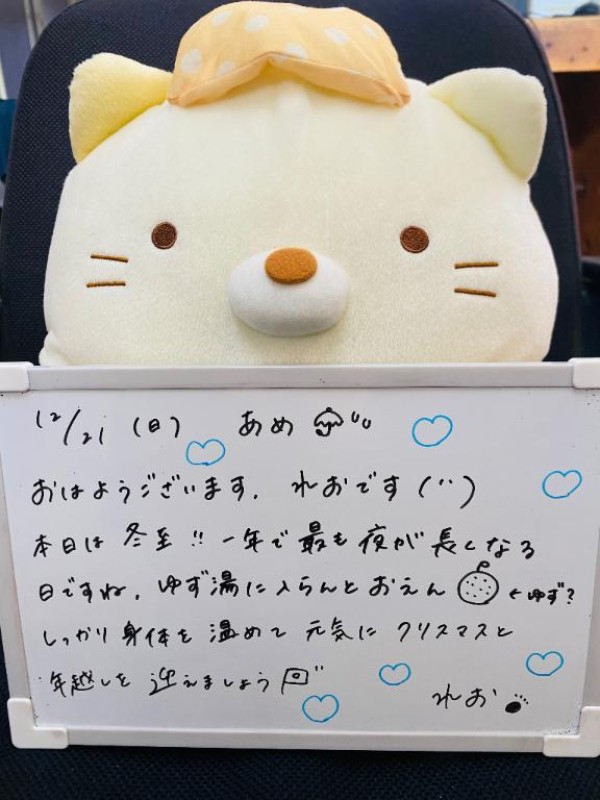 12/21 (日) あめ
おはようございます. れおです (¨)
本日は 冬至!! 一年で 最も 夜が 長くなる
日ですね. ゆず湯に入らんと おえん ←ゆず?
しっかり 身体を 温めて 元気に クリスマスと
年越しを 迎えましょう
れお